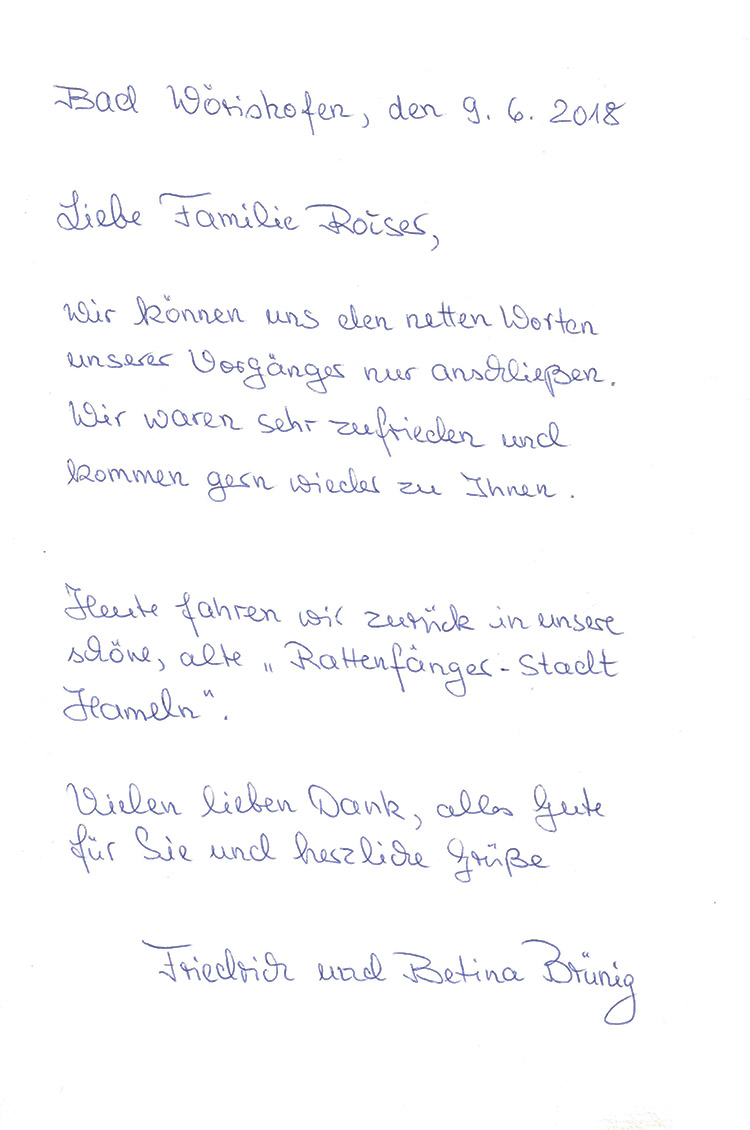 Bad Wörishofen, den 9. 6. 2018
Liebe Familie Roiser,
wir können uns den netten Worten
unserer Vorgänger nur anschließen.
Wir waren sehr zufrieden und
kommen gern wieder zu Ihnen.
Heute fahren wir zurück in unsere
schöne, alte „Rattenfänger-Stadt
Hameln".
Vielen lieben Dank, alles Gute
für Sie und herzliche Grüße
Friedrich und Betina Brünig